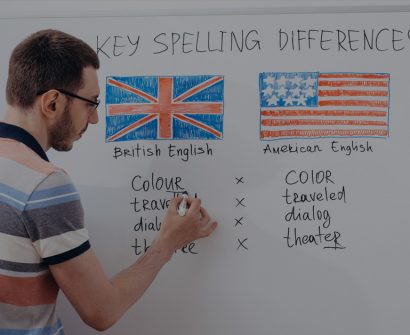 KEY SPELLING DIFFERENCES
British English American English
Colour x COLOR
x traveled
x dialog
x theater